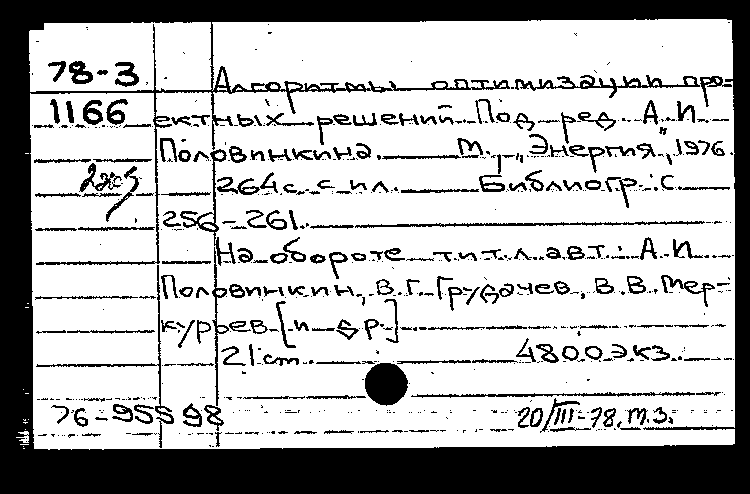 78-3 Алгоритмы оптимизации про=
1166 ектных решений Под ред А. И
Половинкина. М., „Энергия", 1976.
2экз 264 с. с ил. Библиогр.: с.
256-261.
На обороте тит. л. авт.: А. И.
Половинкин, В. Г. Грудачев, В. В. Мер-
курьев [и др.]
21 ст. 4800 экз.
76-95598 20/III-78. т.з.